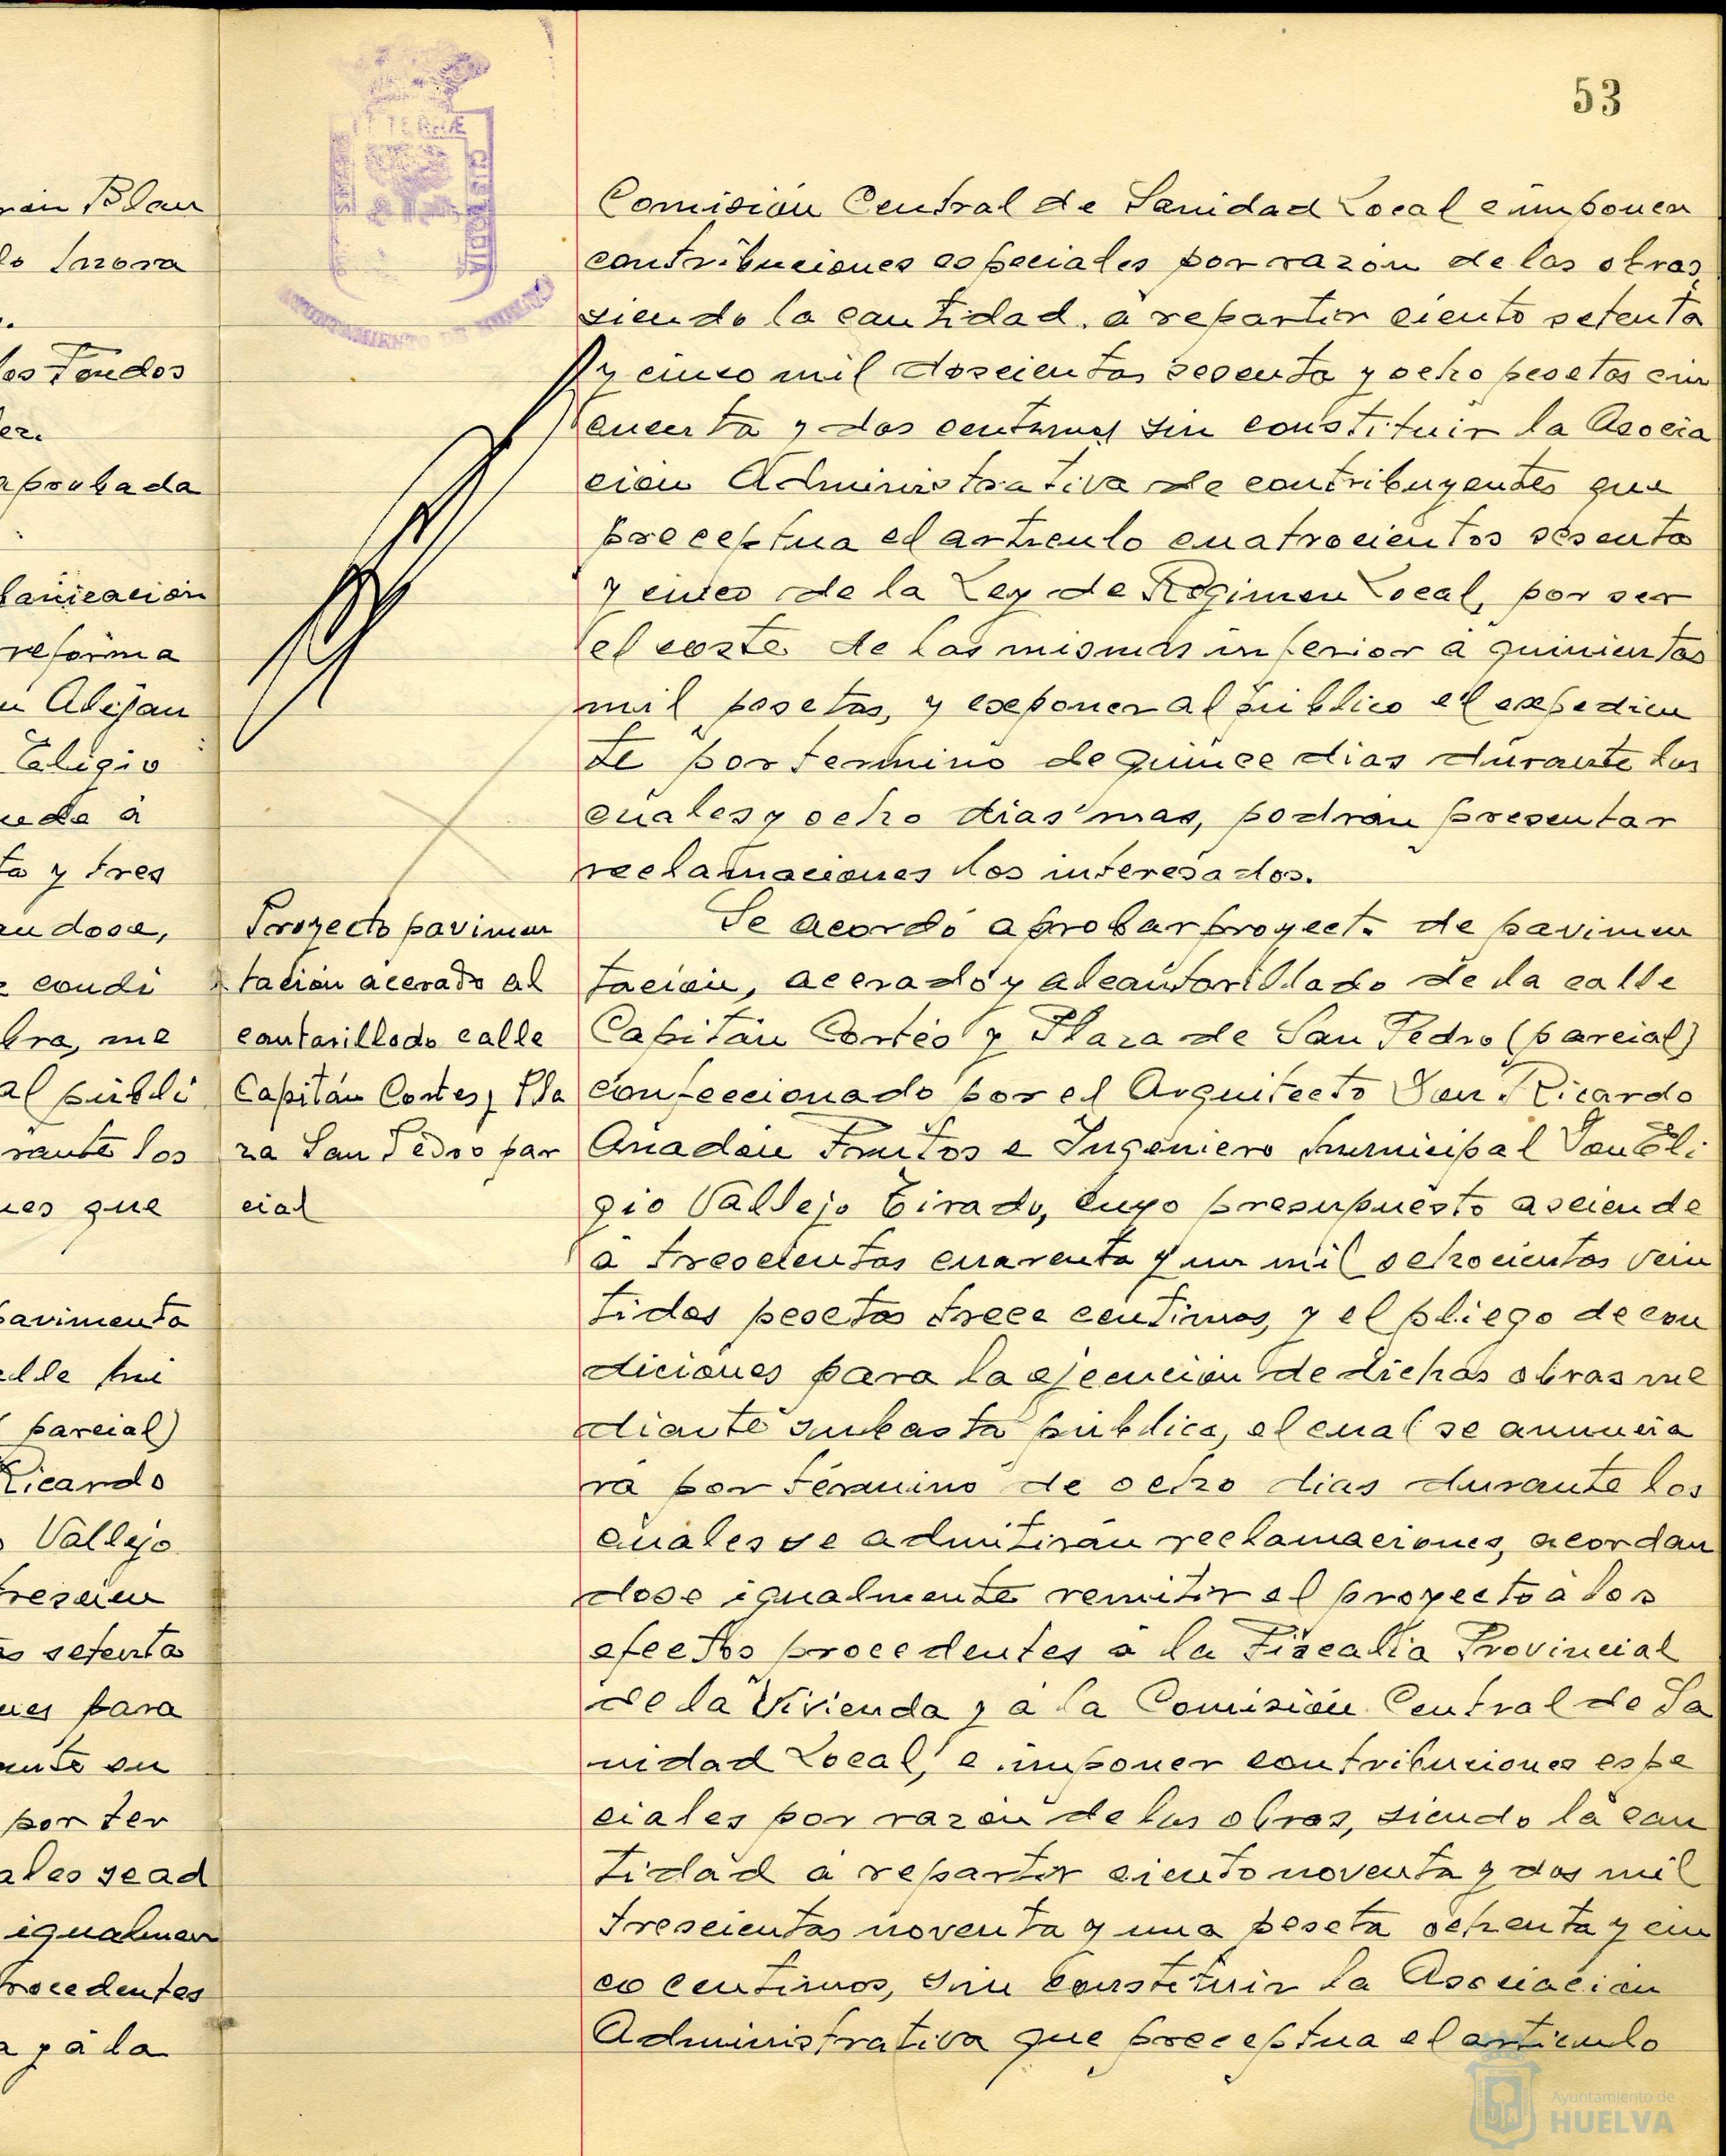 53
Comisión Central de Sanidad Local e imponer
contribuciones especiales por razón de las obras,
siendo la cantidad a repartir ciento setenta
y cinco mil doscientas sesenta y ocho pesetas cin
cuenta y dos centimos sin constituir la Asocia
ción Administrativa de contribuyentes que
preceptua el articulo cuatrocientos sesenta
y cinco de la Ley de Régimen Local, por ser
el coste de las mismas inferior a quinientas
mil pesetas, y exponer al público el expedien
te por termino de quince dias durante los
cuales y ocho dias mas, podran presentar
reclamaciones los interesados.
Proyecto pavimen
tación acerado al
cantarillado calle
Capitán Cortes y Pla
za San Pedro par
cial
Se acordó aprobar proyecto de pavimen
tación, acerado y alcantarillado de la calle
Capitán Cortés y Plaza de San Pedro (parcial)
confeccionado por el Arquitecto Don Ricardo
Anadón Frutos e Ingeniero Municipal Don Eli
gio Vallejo Tirado, cuyo presupuesto asciende
a trescientas cuarenta y un mil ochocientas vein
tidos pesetas trece centimos, y el pliego de con
diciones para la ejecución de dichas obras me
diante subasta pública, el cual se anuncia
rá por término de ocho dias durante los
cuales se admitirán reclamaciones, acordan
dose igualmente remitir el proyecto a los
efectos procedentes a la Fiscalía Provincial
de la Vivienda y a la Comisión Central de Sa
nidad Local, e imponer contribuciones espe
ciales por razón de las obras, siendo la can
tidad a repartir ciento noventa y dos mil
trescientas noventa y una peseta ochenta y cin
co centimos, sin constituir la Asociación
Administrativa que preceptua el articulo
Blan
los Fondos
aprobada
reforma
Alejan
Eligio
ta y tres
condi
bra, me
al públi
rante los
que
pavimenta
parcial)
Ricardo
Vallejo
setenta
para
por ter
ales se ad
igualmen
rocedentes
y á la
TERRÆ
CUSTODIA
AYUNTAMIENTO DE HUELVA
Ayuntamiento de
HUELVA